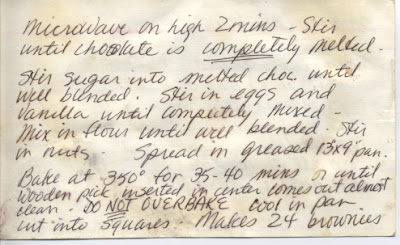 Microwave on high 2 mins - Stir
until chocolate is completely melted.
Stir sugar into melted choc. until
well blended. Stir in eggs and
vanilla until completely mixed -
Mix in flour until well blended. Stir
in nuts Spread in greased 13x9" pan.
Bake at 350° for 35-40 mins or until
wooden pick inserted in center comes out almost
clean - DO NOT OVERBAKE cool in pan -
cut into squares - Makes 24 brownies